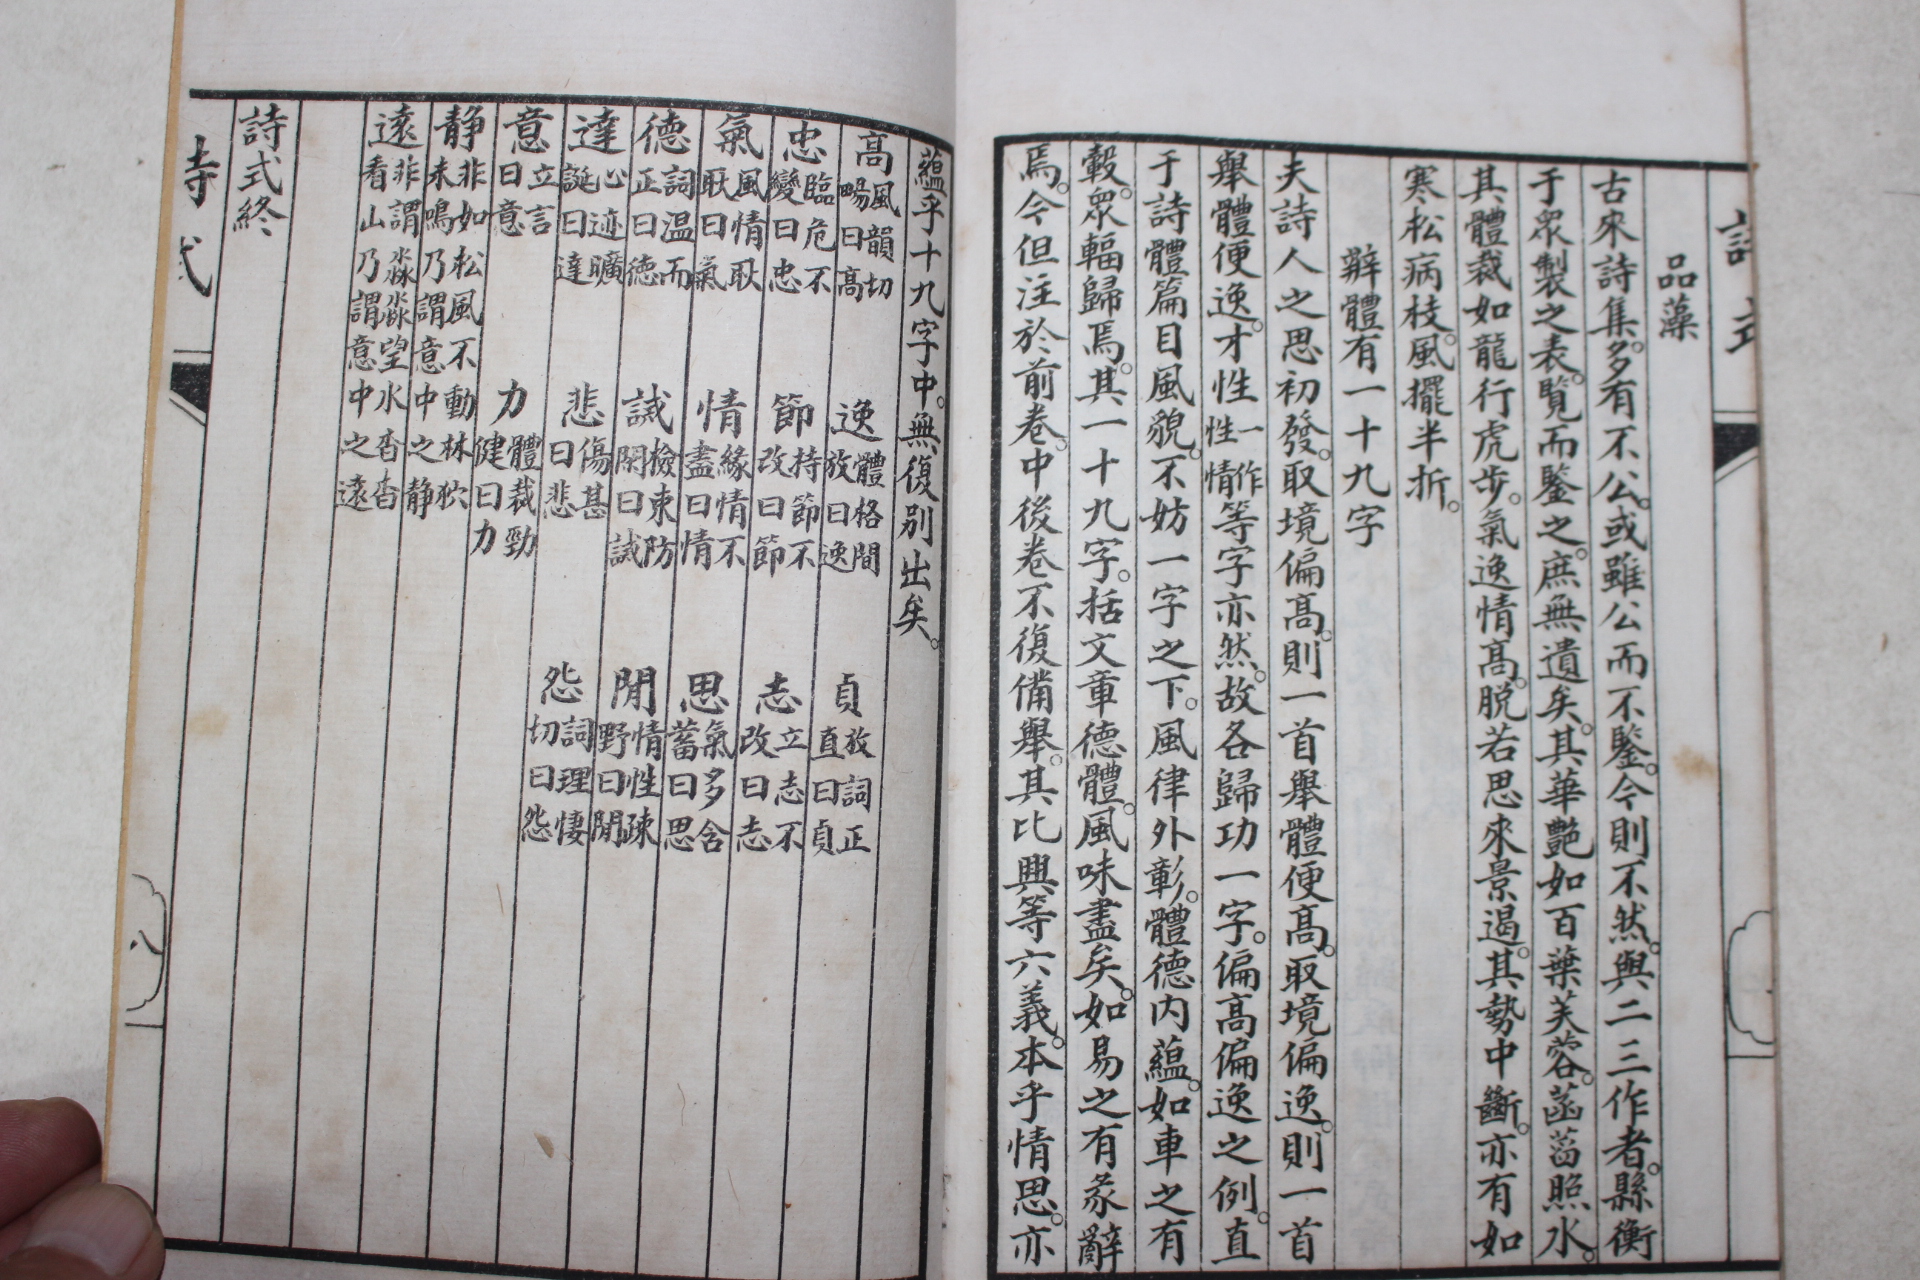 詩式
品藻
古來詩集。多有不公。或雖公而不鑒。今則不然。與二三作者。縣衡
于衆製之表。覽而鑒之。庶無遺矣。其華艷如百葉芙蓉。菡萏照水。
其體裁如龍行虎步。氣逸情高。脫若思來景遏。其勢中斷。亦有如
寒松病枝。風擺半折。
辭體有一十九字
夫詩人之思初發。取境偏高。則一首舉體便高。取境偏逸。則一首
舉體便逸。才性一作性情等字亦然。故各歸功一字。偏高偏逸之例。直
于詩體篇目風貌。不妨一字之下。風律外彰。體德內蘊。如車之有
轂。眾輻歸焉。其一十九字。括文章德體。風味盡矣。如易之有彖辭
焉。今但注於前卷。中後卷不復備舉。其比興等六義。本乎情思。亦
蘊乎十九字中。無復別出矣。
高風韻切暢曰高 逸體格閒放曰逸 貞放詞正直曰貞
忠臨危不變曰忠 節持節不改曰節 志立志不改曰志
氣風情耿耿曰氣 情緣情不盡曰情 思氣多含蓄曰思
德詞温而正曰德 誡檢束防閑曰誡 閒情性疎野曰閒
達心迹曠誕曰達 悲傷甚曰悲 怨詞理悽切曰怨
意立言曰意 力體裁勁健曰力
静非如松風不動林狖未鳴乃謂意中之静
遠非謂淼淼望水杳杳看山乃謂意中之遠
詩式終
詩式
八